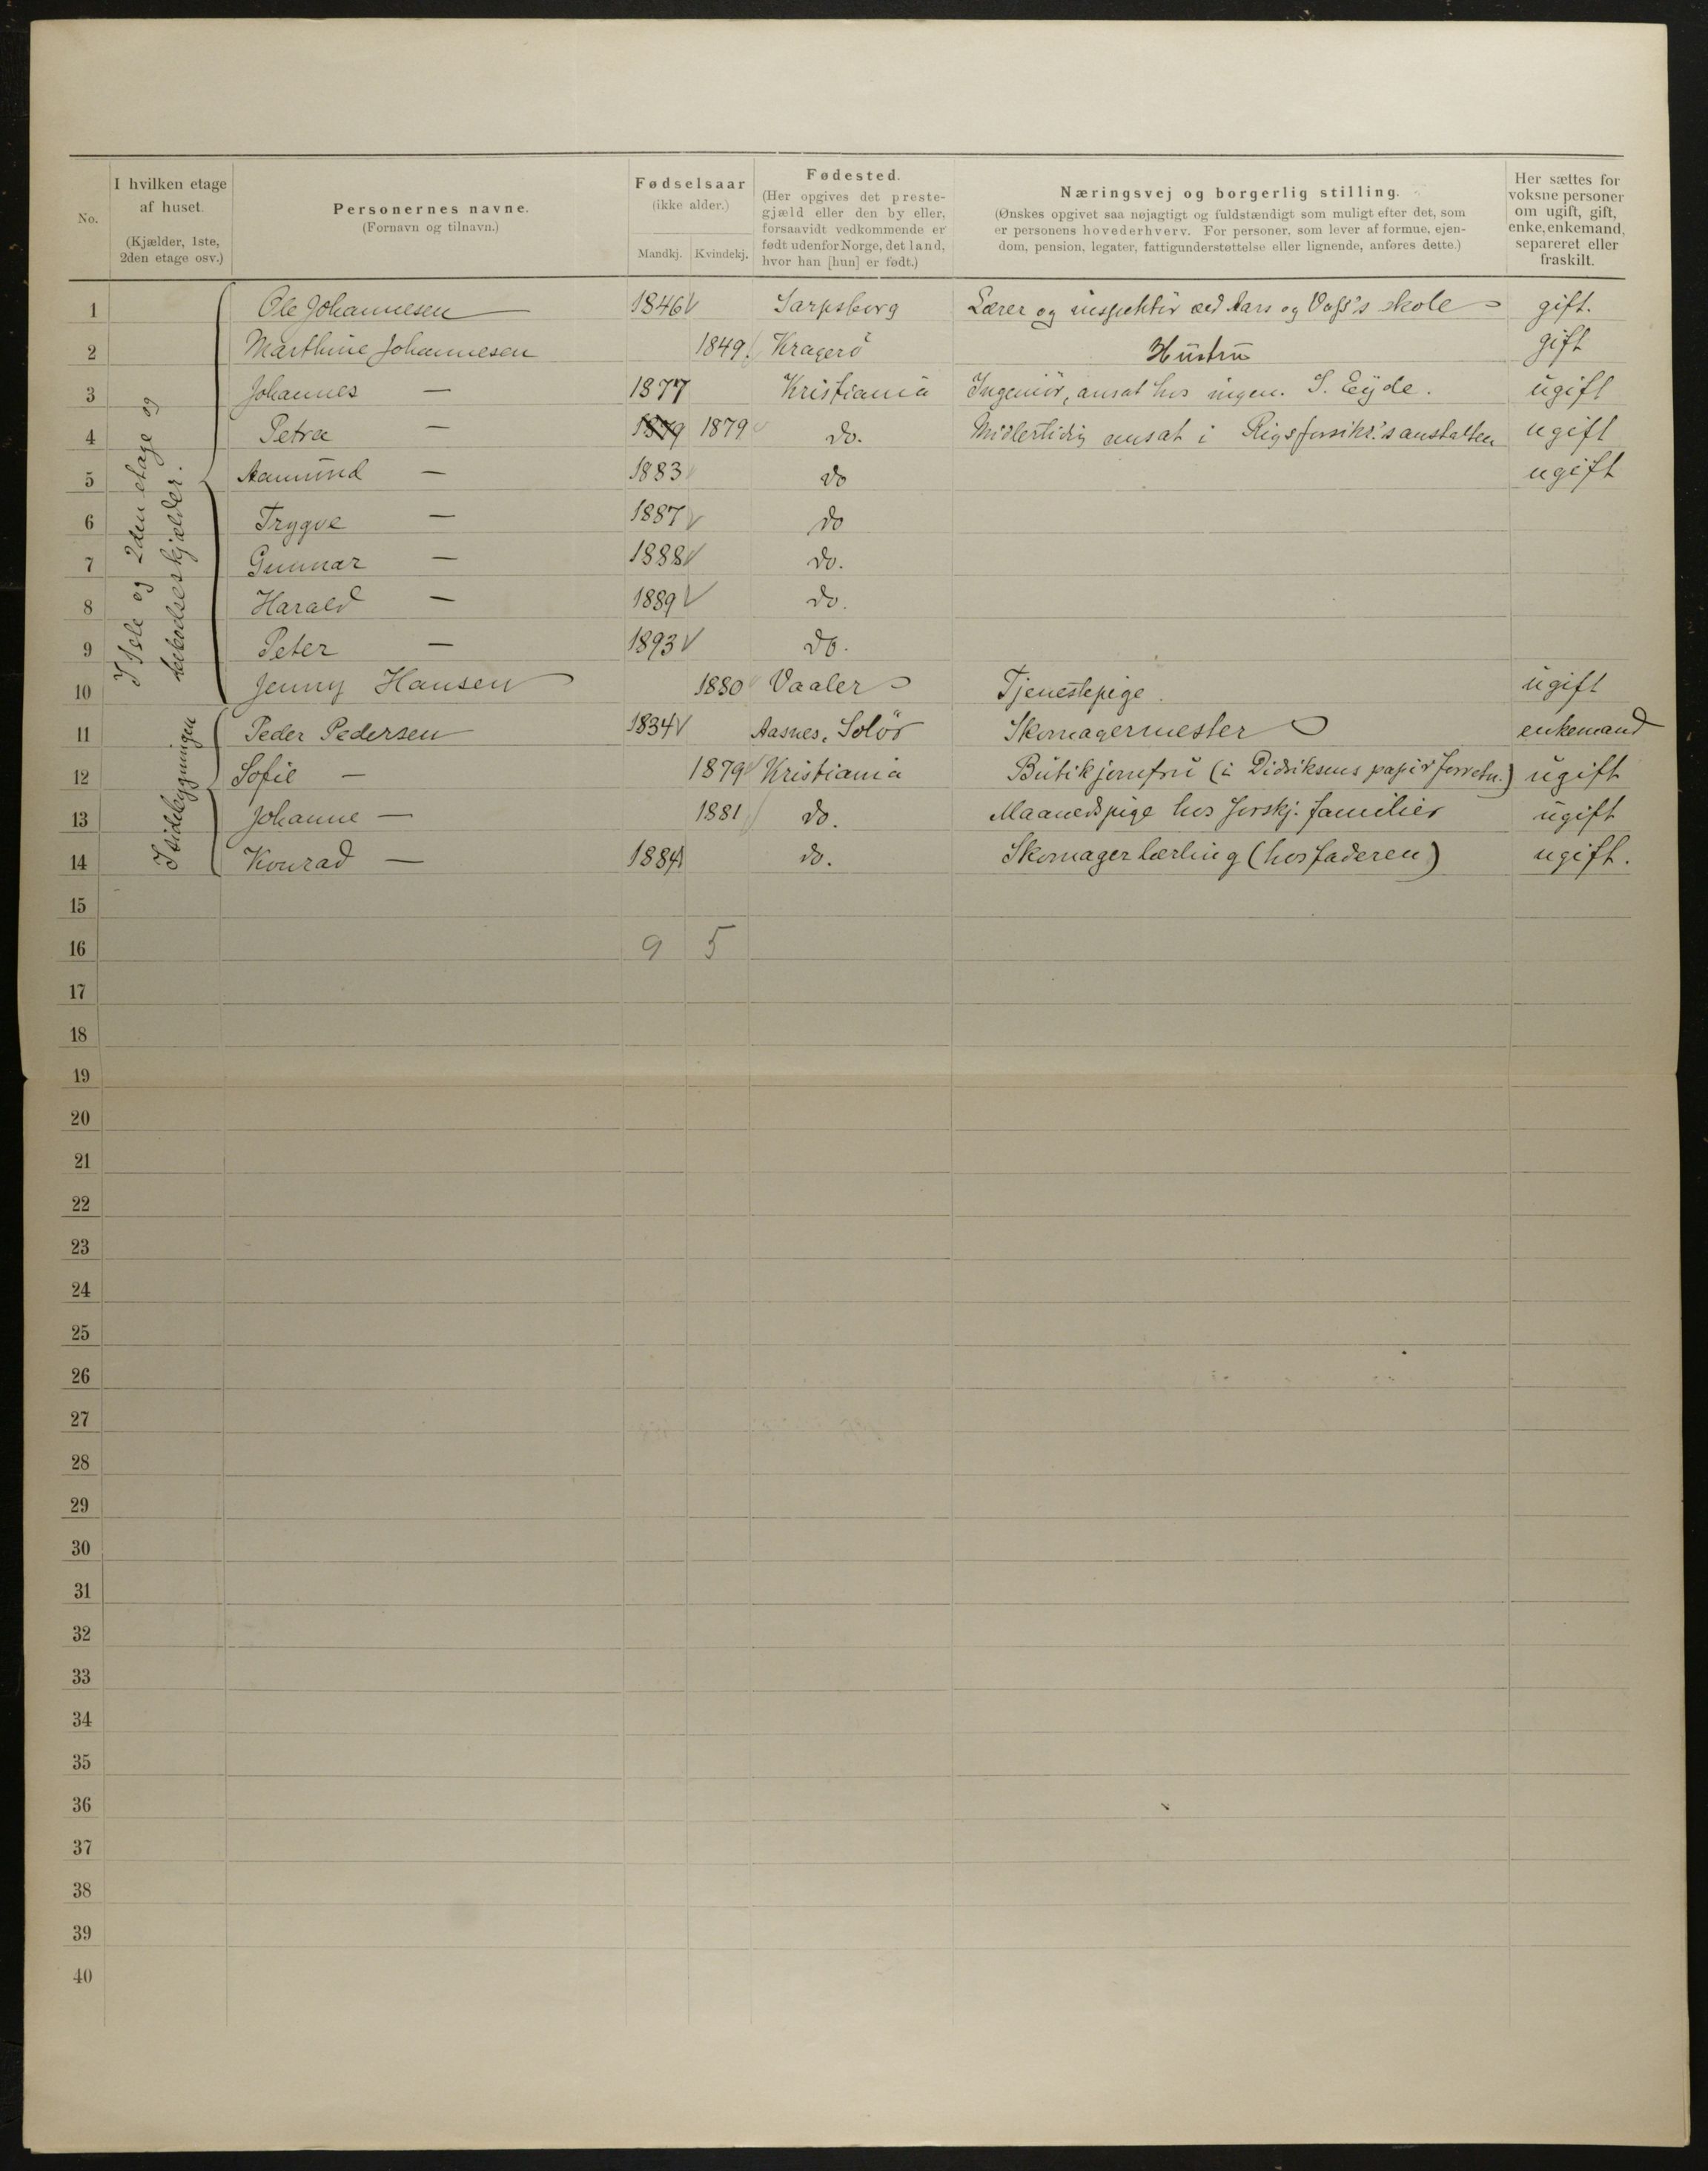 No. I hvilken etage af huset. (Kjælder, 1ste, 2den etage osv.) Personernes navne. (Fornavn og tilnavn.) Fødselsaar (ikke alder.) Mandkj. Kvindekj. Fødested. (Her opgives det prestegjæld eller den by eller, forsaavidt vedkommende er født udenfor Norge, det land, hvor han [hun] er født.) Næringsvej og borgerlig stilling. (Ønskes opgivet saa nøjagtigt og fuldstændigt som muligt efter det, som er personens hovederhverv. For personer, som lever af formue, ejendom, pension, legater, fattigunderstøttelse eller lignende, anføres dette.) Her sættes for voksne personer om ugift, gift, enke, enkemand, separeret eller fraskilt.
I 1ste og 2den etage og beboelseskjælder.
1 Ole Johannesen 1846 Sarpsborg Lærer og inspektör ved Aars og Voss's skole gift.
2 Marthine Johannesen 1849 Kragerö Hustru gift
3 Johannes — 1877 Kristiania Ingeniör, ansat hos ingen. S. Eyde. ugift
4 Petra — 1879 1879 do. Midlertidig ansat i Rigsforsikr.'s anstalten ugift
5 Aamund — 1883 do ugift
6 Trygve — 1887 do
7 Gunnar — 1888 do.
8 Harald — 1889 do.
9 Peter — 1893 do.
10 Jenny Hansen 1880 Vaaler Tjenestepige. ugift
I sidebygningen
11 Peder Pedersen 1834 Aasnes, Solör Skomagermester enkemand
12 Sofie — 1879 Kristiania Butikjomfru (i Didriksens papirforretn.) ugift
13 Johanne — 1881 do. Maanedspige hos forskj. familier ugift
14 Konrad — 1884 do. Skomagerlærling (hos faderen) ugift.
15
16 9 5
17
18
19
20
21
22
23
24
25
26
27
28
29
30
31
32
33
34
35
36
37
38
39
40